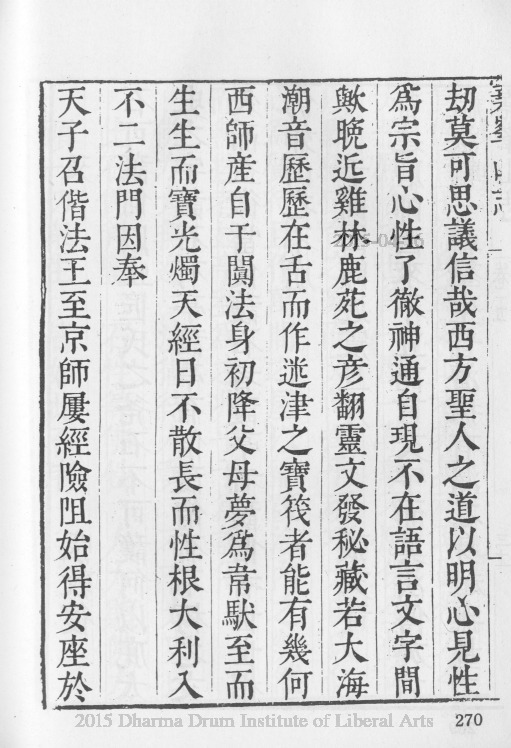 劫莫可思議信哉西方聖人之道以明心見性
爲宗旨心性了徹神通自現不在語言文字間
歟晩近雞林鹿苑之彦翻靈文發秘藏若大海
潮音歷歷在舌而作迷津之寶筏者能有幾何
西師産自于闐法身初降父母夢爲常馱至而
生生而寶光燭天經日不散長而性根大利入
不二法門因奉
天子召偕法王至京師屢經險阻始得安座於
2015 Dharma Drum Institute of Liberal Arts 270